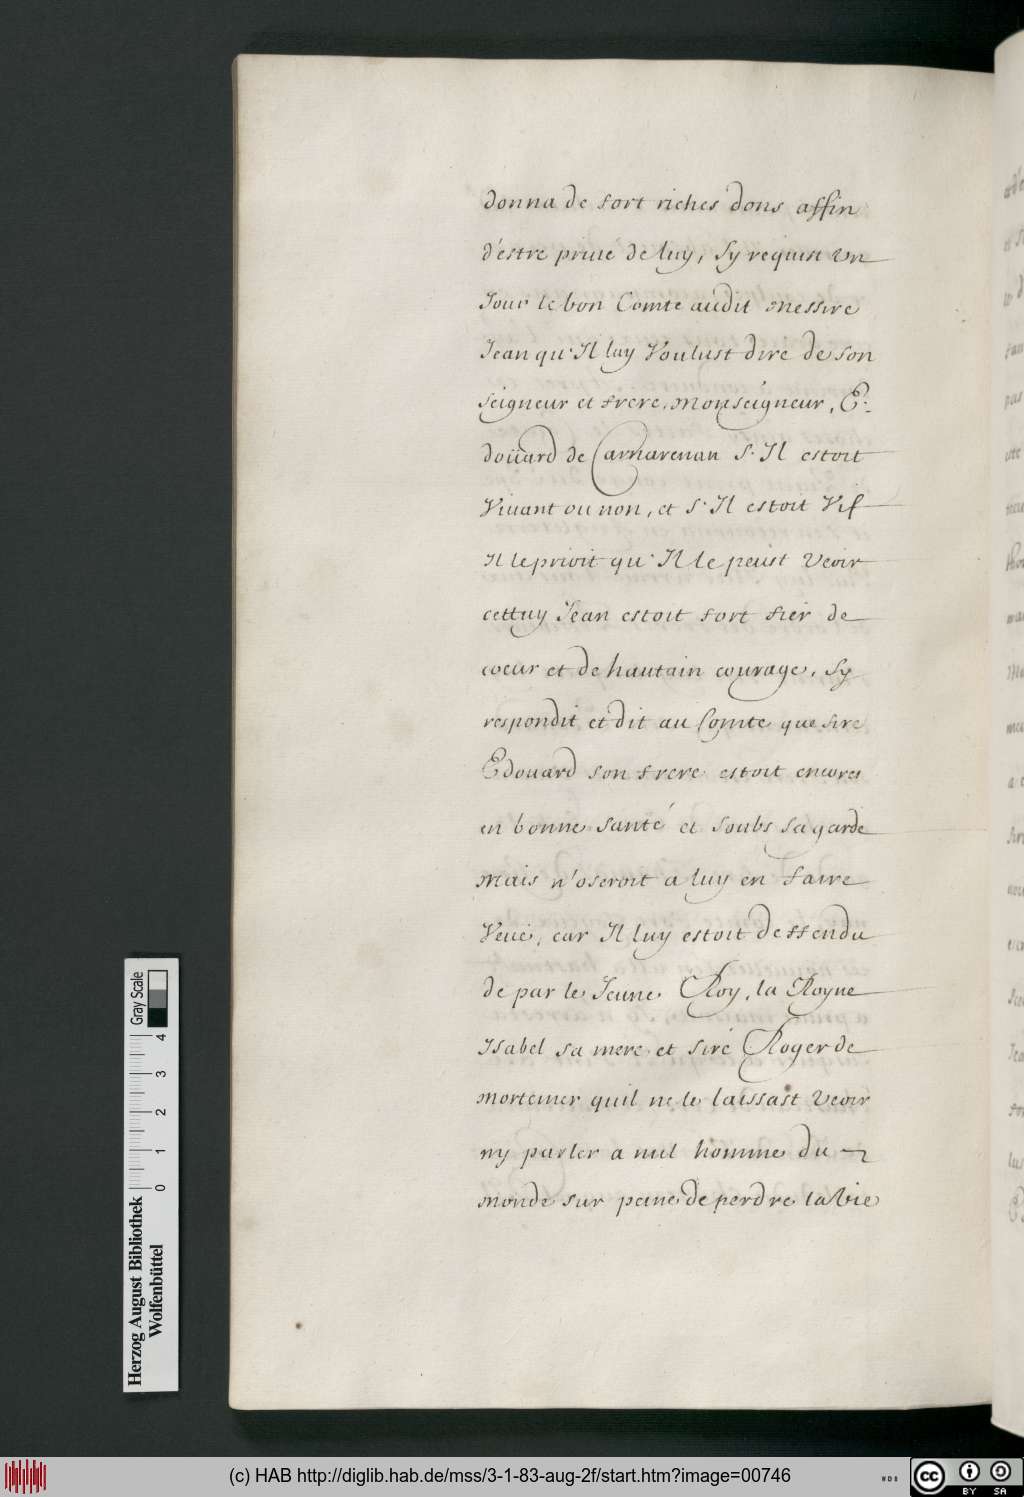 donna de fort riches dons affin
d'estre privé de luy, Sy requist Un
Jour le bon Comte audit messire
Jean qu'Il luy Voulust dire de son
seigneur et frere, monseigneur, E-
doüard de Carnarenan s'Il estoit
Vivant ou non, et s'Il estoit Vif
Il le prioit qu'Il le peust Veoir
cettuy Jean estoit fort fier de
coeur et de hautain courage, Sy
respondit et dit au Comte que sire
Edouard son frere estoit encores
en bonne santé et soubs sa garde
mais n'oseroit a luy en faire
Veüe, car Il luy estoit deffendu
de par le Jeune Roy, la Royne
Isabel sa mere et sire Roger de
mortemer quil ne le laissast Veoir
ny parler a nul homme du
monde sur peine de perdre la Vie
Gray Scale
0 1 2 3 4
Herzog August Bibliothek
Wolfenbüttel
(c) HAB http://diglib.hab.de/mss/3-1-83-aug-2f/start.htm?image=00746
WDB
CC BY SA